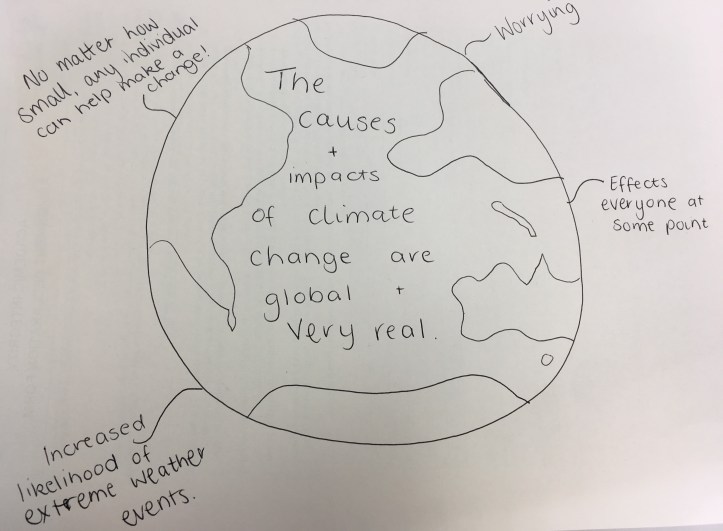 No matter how
small, any individual
can help make a
change!
Worrying
The
causes
+
impacts
of climate
change are
global +
very real.
Effects
everyone at
some point
Increased
likelihood of
extreme weather
events.